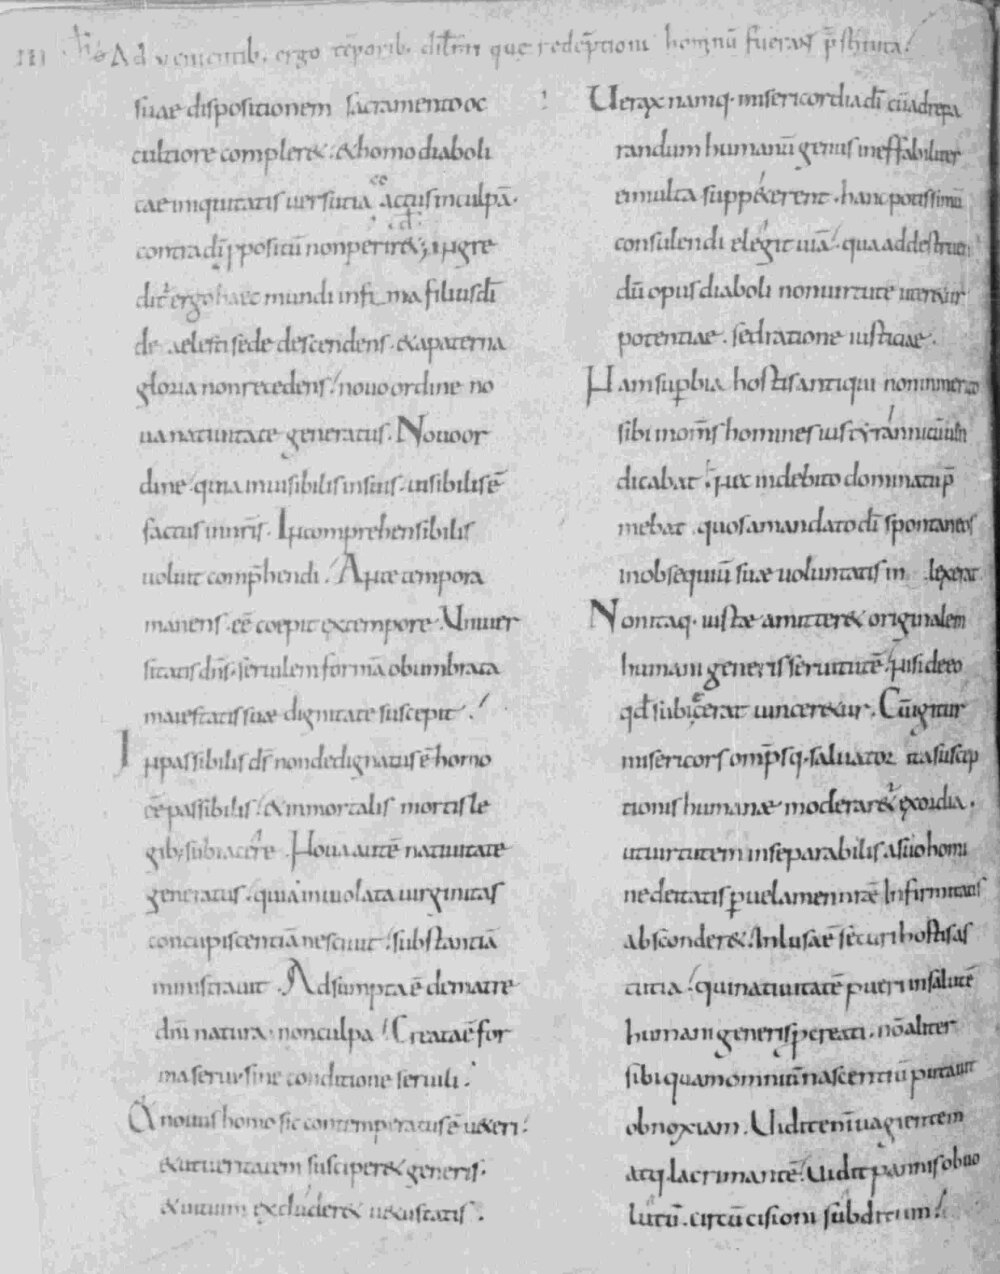 III hő Ad venientib; ergo tēporib; dilc̄m̄i que redēptioni hominū fuerant p̄stituta
suae dispositionem sacramento oc
cultiore compleret; & homo diaboli
cae iniquitatis uersutia coactus in culpā.
contra dī ppositū non periret; Ingre
ditr ergo haec mundi infima filius dī
de caelesti sede descendens. & a paterna
gloria non recedens; nouo ordine no
ua natiuitate generatus. Nouo or
dine quia inuisibilis in suis. uisibilis ē
factus in nr̄is. Incomprehensibilis
uoluit comp̄hendi. Ante tempora
manens. eē coepit ex tempore. Uniuer
sitatis dn̄s. seruilem formā obumbrata
maiestatis suae dignitate suscepit.
Inpassibilis ds̄ non dedignatus ē homo
eē passibilis. & inmortalis mortis le
gib; subiacere. Noua autē natiuitate
generatus. quia inuiolata uirginitas
concupiscentiā nesciuit. substantiā
ministrauit. Adsumpta ē de matre
dn̄i natura. non culpa. Creata ē for
ma serui. sine conditione seruili.
Qa nouus homo sic contemperatus ē ueteri.
ut & ueritatem susciperet generis.
& uitium excluderet uetustatis.
Uerax namq; misericordia dī cū ad repa
randum humanū genus ineffabiliter
ei multa suppeterent. hanc potissimū
consulendi elegit uiā. qua ad destruen
dū opus diaboli non uirtute uteretur
potentiae. sed ratione iusticiae.
Nam supbia hostis antiqui non inmerito
sibi in om̄s homines ius tyrannicū uin
dicabat. nec indebito dominatu p̄
mebat. quos a mandato dī spontaneos
in obsequiū suae uoluntatis inlexerat.
Non itaq; iuste amitteret originalem
humani generis seruitutē. nisi de eo
qđ subiecerat uinceretur. Cū igitur
misericors omp̄sq; saluator ita suscep
tionis humanae moderaretr exordia.
ut uirtutem inseparabilis a suo homi
ne deitatis p uelamen nr̄ae infirmitatis
absconderet. Inlusa ē securi hostis as
tutia. qui natiuitatē pueri in salutē
humani generis pcreati. nō aliter
sibi quam omniū nascentiū putauit
obnoxiam. Uidit enī uagientem
atq; lacrimantē. Uidit pannis obuo
lutū. circūcisioni subditum.